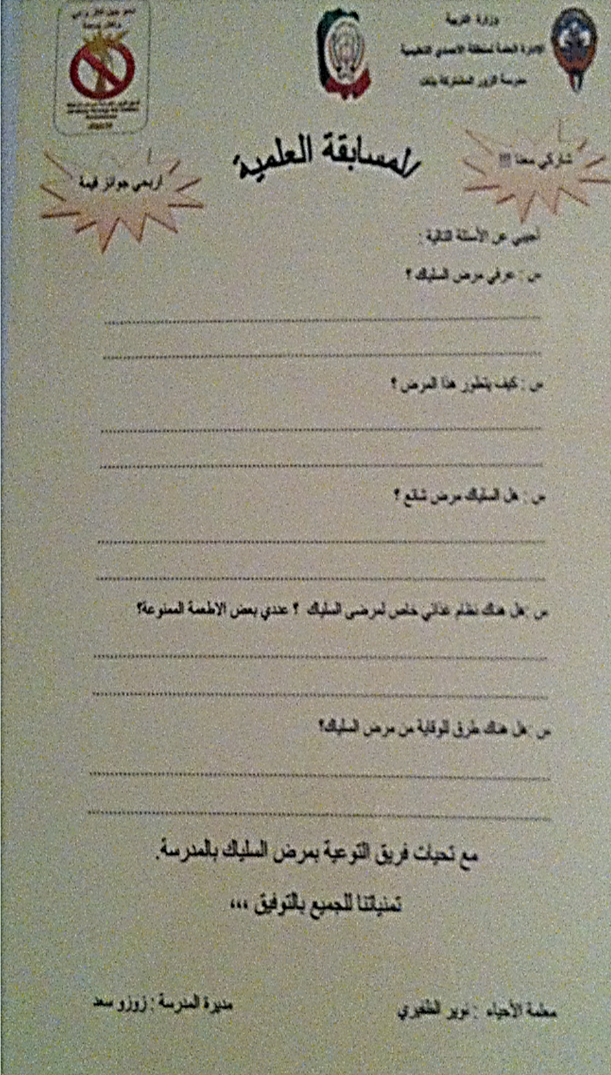 وزارة التربية
الإدارة العامة لمنطقة الاحمدي التعليمية
مدرسة الزور المشتركة بنات
المسابقة العلمية
شاركي معنا !!!
اربحي جوائز قيمة
أجيبي عن الأسئلة التالية :
س : عرفي مرض السلياك ؟
س : كيف يتطور هذا المرض ؟
س : هل السلياك مرض شائع ؟
س :هل هناك نظام غذائي خاص لمرضى السلياك ؟ عددي بعض الاطعمة الممنوعة؟
س :هل هناك طرق للوقاية من مرض السلياك؟
مع تحيات فريق التوعية بمرض السلياك بالمدرسة.
تمنياتنا للجميع بالتوفيق ،،،
معلمة الأحياء : نوير الظفيري
مديرة المدرسة : زوزو سعد